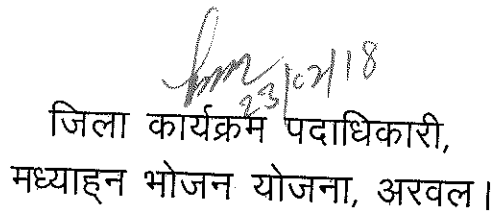 23/02/18
जिला कार्यक्रम पदाधिकारी,
मध्याह्न भोजन योजना, अरवल।